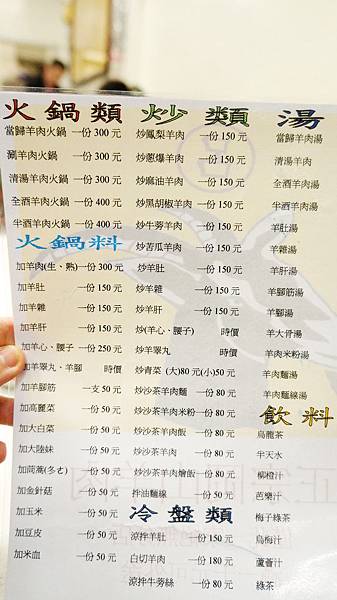 火鍋類
當歸羊肉火鍋 一份 300 元
涮羊肉火鍋 一份 300 元
清湯羊肉火鍋 一份 300 元
全酒羊肉火鍋 一份 400 元
半酒羊肉火鍋 一份 400 元
火鍋料
加羊肉(生、熟) 一份 300 元
加羊肚 一份 150 元
加羊雜 一份 150 元
加羊肝 一份 150 元
加羊心、腰子 一份 250 元
加羊睪丸、羊腳 時價
加羊腳筋 一支 50 元
加高麗菜 一份 50 元
加大白菜 一份 50 元
加大陸妹 一份 50 元
加茼蒿(冬ㄜ) 一份 50 元
加金針菇 一份 50 元
加玉米 一份 50 元
加豆皮 一份 50 元
加米血 一份 50 元
炒類
炒鳳梨羊肉 一份 150 元
炒蔥爆羊肉 一份 150 元
炒麻油羊肉 一份 150 元
炒黑胡椒羊肉 一份 150 元
炒牛蒡羊肉 一份 150 元
炒苦瓜羊肉 一份 150 元
炒羊肚 一份 150 元
炒羊雜 一份 150 元
炒羊肝 一份 150 元
炒(羊心、腰子) 時價
炒羊睪丸 時價
炒青菜 (大)80 元(小)50 元
炒沙茶羊肉麵 一份 80 元
炒沙茶羊肉米粉 一份 80 元
炒沙茶羊肉飯 一份 80 元
炒沙茶羊肉 一份 50 元
炒沙茶羊肉燴飯 一份 80 元
拌油麵線 一份 50 元
冷盤類
涼拌羊肚 一份 150 元
白切羊肉 一份 180 元
涼拌牛蒡絲 一份 80 元
湯
當歸羊肉湯
清湯羊肉
全酒羊肉湯
半酒羊肉湯
羊肚湯
羊雜湯
羊肝湯
羊腳筋湯
羊腳湯
羊大骨湯
羊肉米粉湯
羊肉麵湯
羊肉麵線湯
飲料
烏龍茶
半天水
柳橙汁
芭樂汁
梅子綠茶
烏梅汁
蘆薈汁
綠茶